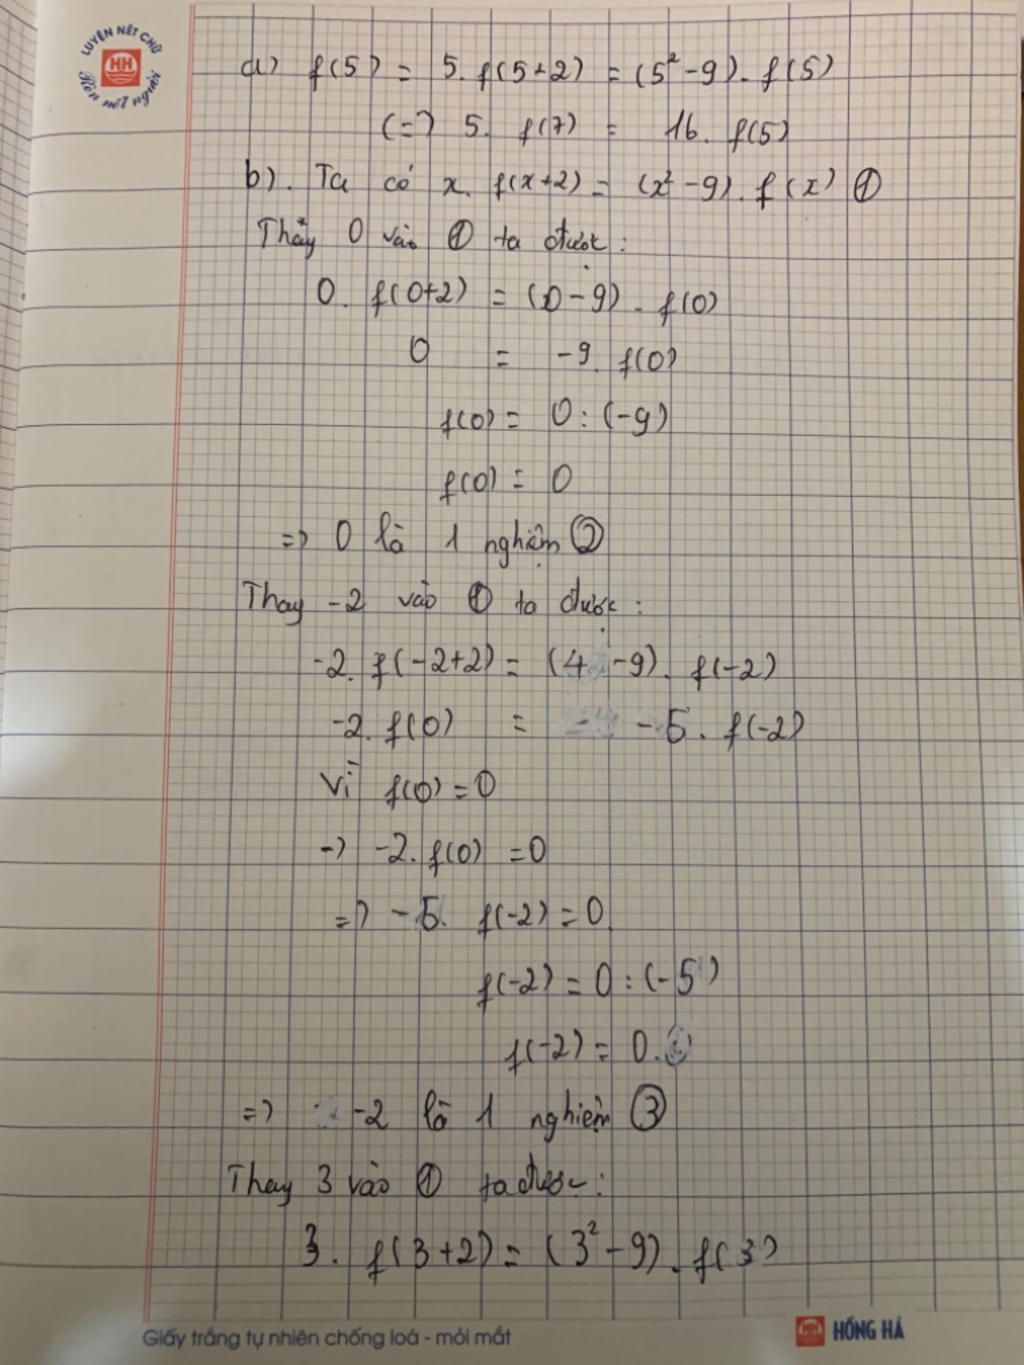 LUYỆN NÉT CHỮ
HH
Rèn nết người
a) f(5) = 5. f(5+2) = (5² -9). f(5)
(=) 5. f(7) = 16. f(5)
b). Ta có x. f(x+2) = (x² -9). f(x) ①
Thấy 0 vào ① ta được :
0. f(0+2) = (0-9). f(0)
0 = -9. f(0)
f(0) = 0 : (-9)
f(0) = 0
=> 0 là 1 nghiệm ②
Thay -2 vào ① ta được :
-2. f(-2+2) = (4 -9). f(-2)
-2. f(0) = -5. f(-2)
Vì f(0) = 0
-) -2. f(0) = 0
=> -5. f(-2) = 0
f(-2) = 0 : (-5)
f(-2) = 0.
=> -2 là 1 nghiệm ③
Thay 3 vào ① ta được :
3. f(3+2) = (3² -9). f(3)
Giấy trắng tự nhiên chống loá - mỏi mắt
HH HỒNG HÀ